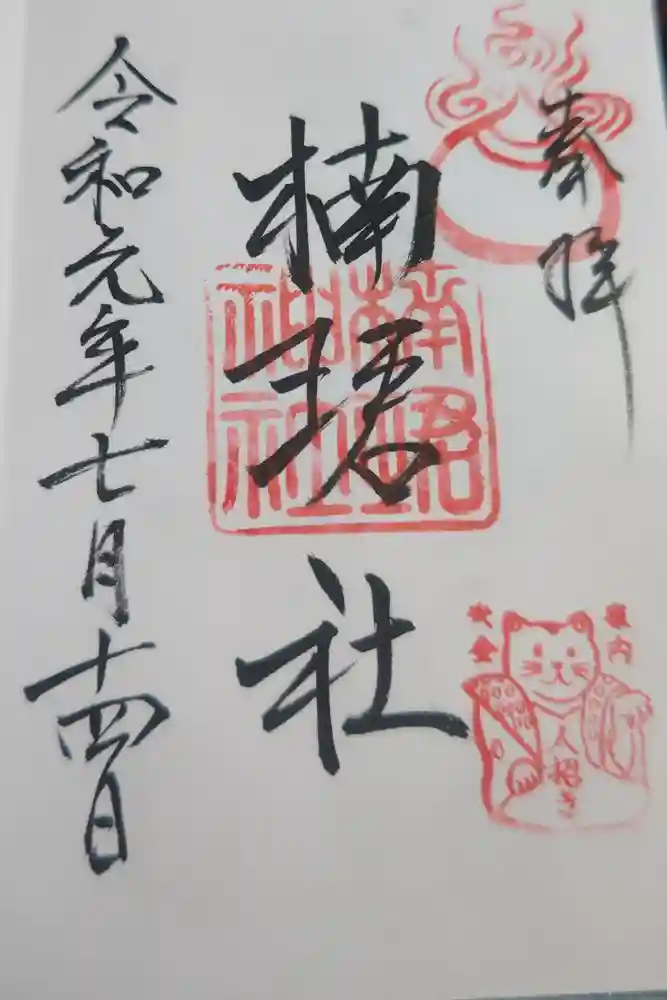 奉拝
楠珺社
楠珺神社
家内
安全
人招き
令和元年七月十四日